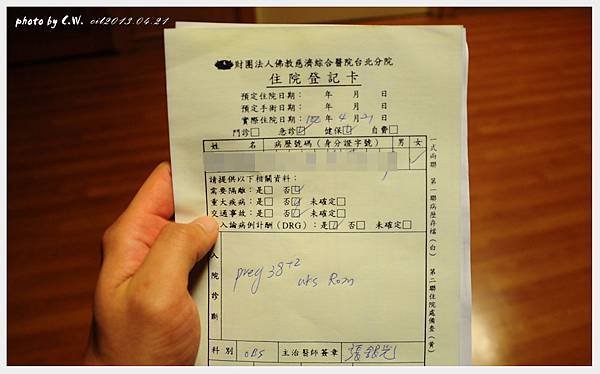 photo by C.W. cil2013.04.21
財團法人佛教慈濟綜合醫院台北分院
住院登記卡
預定住院日期： 年 月 日
預定手術日期： 年 月 日
實際住院日期：102年4月21日
門診□ 急診☑ 健保☑ 自費□
姓名 病歷號碼(身分證字號) 男 女
請提供以下相關資料：
需要隔離：是□ 否☑
重大疾病：是□ 否☑ 未確定□
交通事故：是□ 否☑ 未確定□
入論病例計酬(DRG)：是☑ 否□ 未確定□
入院診斷
preg 38+2
wks
科別 OBS 主治醫師簽章 張銀光
一式兩聯 第一聯病歷存檔(白) 第二聯住院處備查(黃)